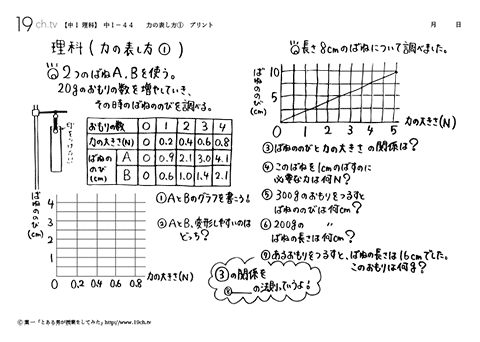 19ch.tv 【中1 理科】 中1-44 力の表し方① プリント 月 日
理科(力の表し方①)
2つのばねA,Bを使う。
20gのおもりの数を増やしていき、
その時のばねののびを調べる。
おもりの数 0 1 2 3 4
力の大きさ(N) 0 0.2 0.4 0.6 0.8
ばねののび(cm) A 0 0.9 2.1 3.0 4.1
B 0 0.6 1.0 1.4 2.1
ばねののび(cm)
4
3
2
1
0 0.2 0.4 0.6 0.8 力の大きさ(N)
①AとBのグラフを書こう!
②AとB、変形しやすいのは
どっち?
長さ8cmのばねについて調べました。
ばねののび(cm)
10
5
0 1 2 3 4 5 力の大きさ(N)
③ばねののびと力の大きさの関係は?
④このばねを1cmのばすのに
必要な力は何N?
⑤300gのおもりをつるすと
ばねののびは何cm?
⑥200gの 〃
ばねの長さは何cm?
⑦あるおもりをつるすと、ばねの長さは16cmでした。
このおもりは何g?
③の関係を
⑧ の法則っていうよ!
© 葉一「とある男が授業をしてみた」http://www.19ch.tv